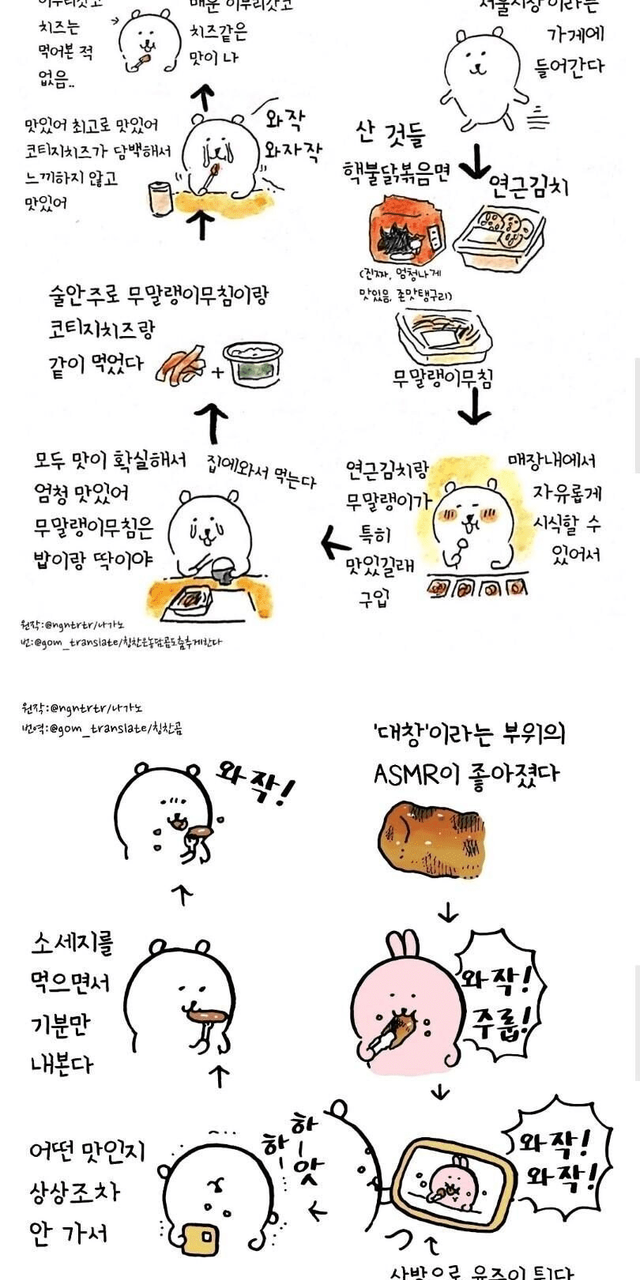 서울시장이라는
가게에
들어간다
산 것들
핵불닭볶음면
연근김치
(진짜, 엄청나게
맛있음, 존맛탱구리)
무말랭이무침
매장내에서
자유롭게
시식할 수
있어서
연근김치랑
무말랭이가
특히
맛있길래
구입
집에와서 먹는다
모두 맛이 확실해서
엄청 맛있어
무말랭이무침은
밥이랑 딱이야
술안주로 무말랭이무침이랑
코티지치즈랑
같이 먹었다
+
와작
와자작
맛있어 최고로 맛있어
코티지치즈가 담백해서
느끼하지 않고
맛있어
매운 이부리갓코
치즈같은
맛이 나
이부리갓코
치즈는
먹어본 적
없음..
원작:@ngntrtr/나가노
번:@gom_translate/칭찬은농담곰도춤추게한다
원작:@ngntrtr/나가노
번역:@gom_translate/칭찬곰
'대창'이라는 부위의
ASMR이 좋아졌다
와작!
주륩!
와작!
와작!
사방으로 육즙이 튄다
하-
하-
앗
어떤 맛인지
상상조차
안 가서
소세지를
먹으면서
기분만
내본다
와작!